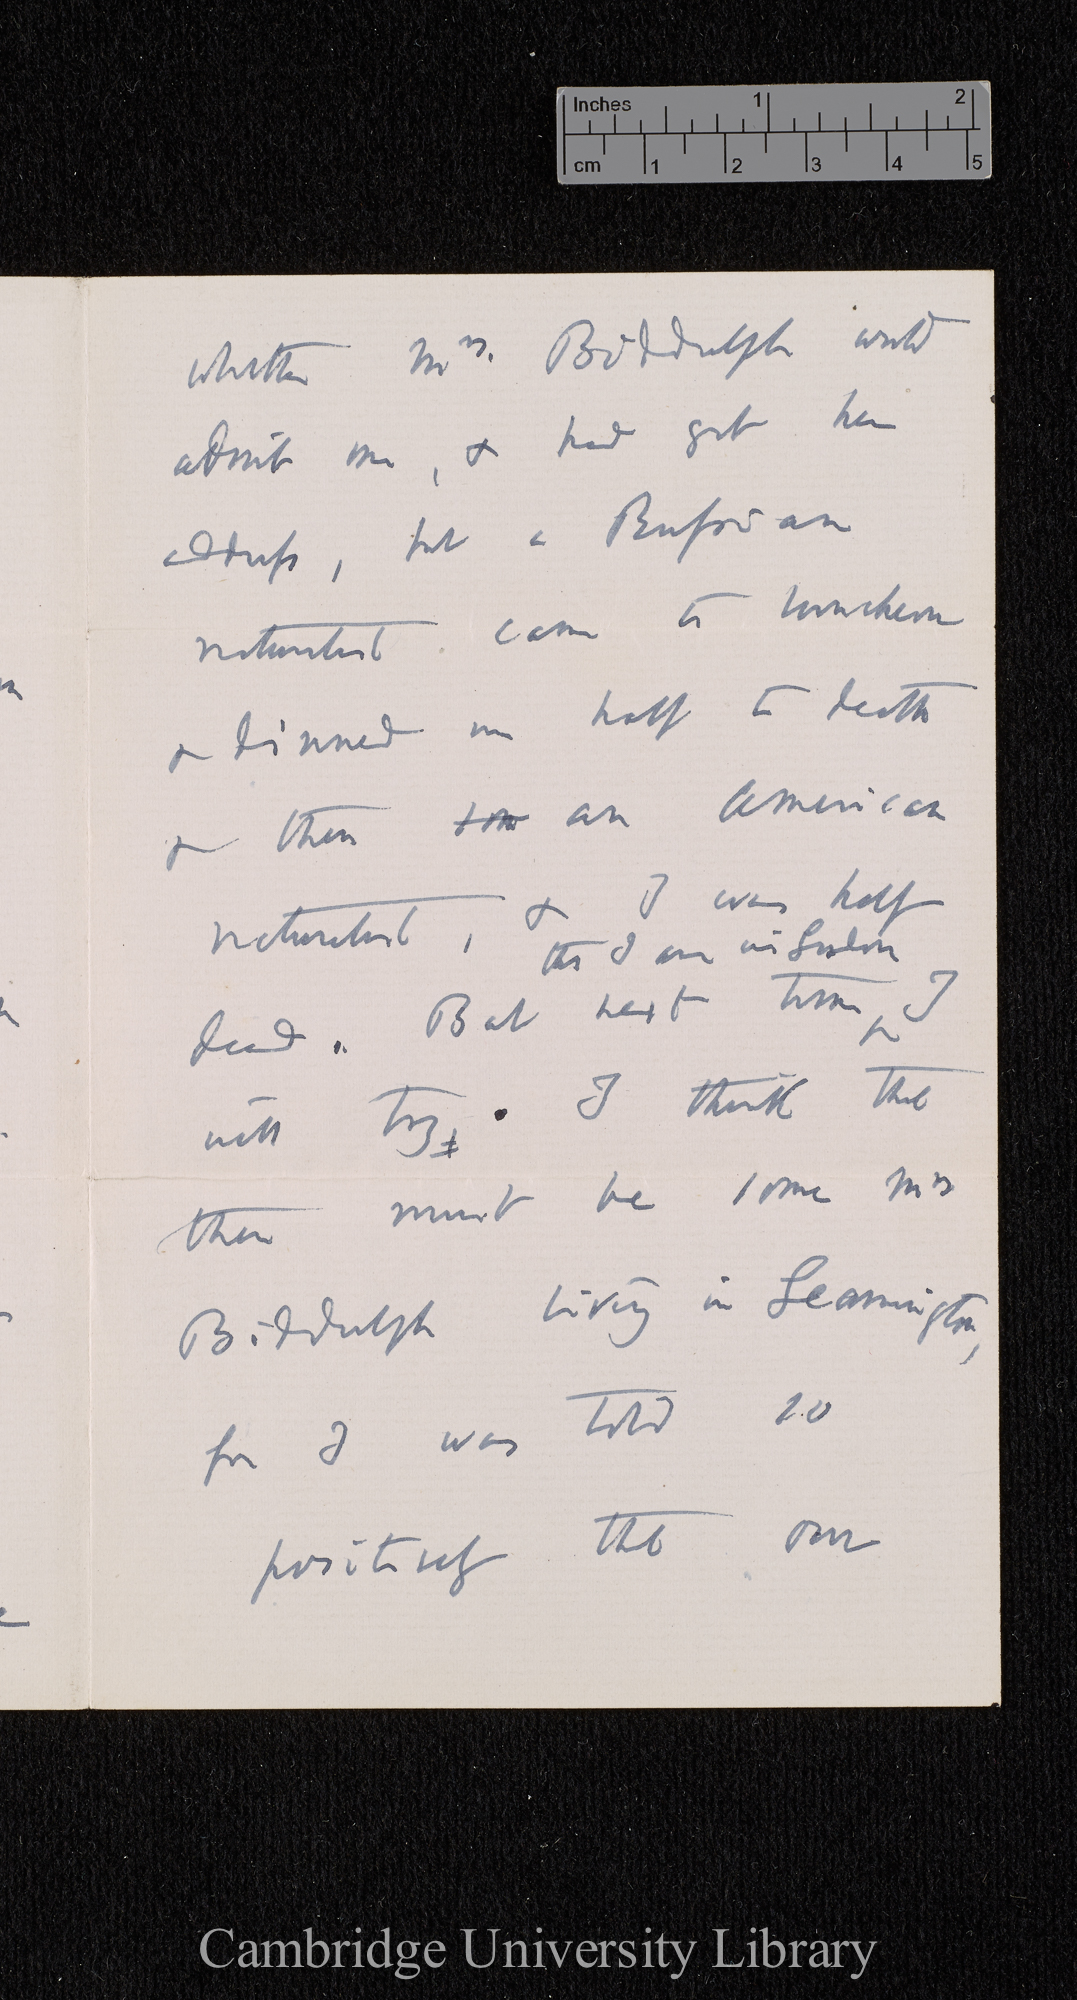 Inches 1 2
cm 1 2 3 4 5
whether Mrs. Biddulph would
admit me, & had got her
address, but a Russian
naturalist came to luncheon
& dinned me half to death
& then an American
naturalist, & I was half
that I am in London
dead. But next time I
will try. I think that
there must be some Mrs
Biddulph living in Leamington,
for I was told so
positively that our
Cambridge University Library